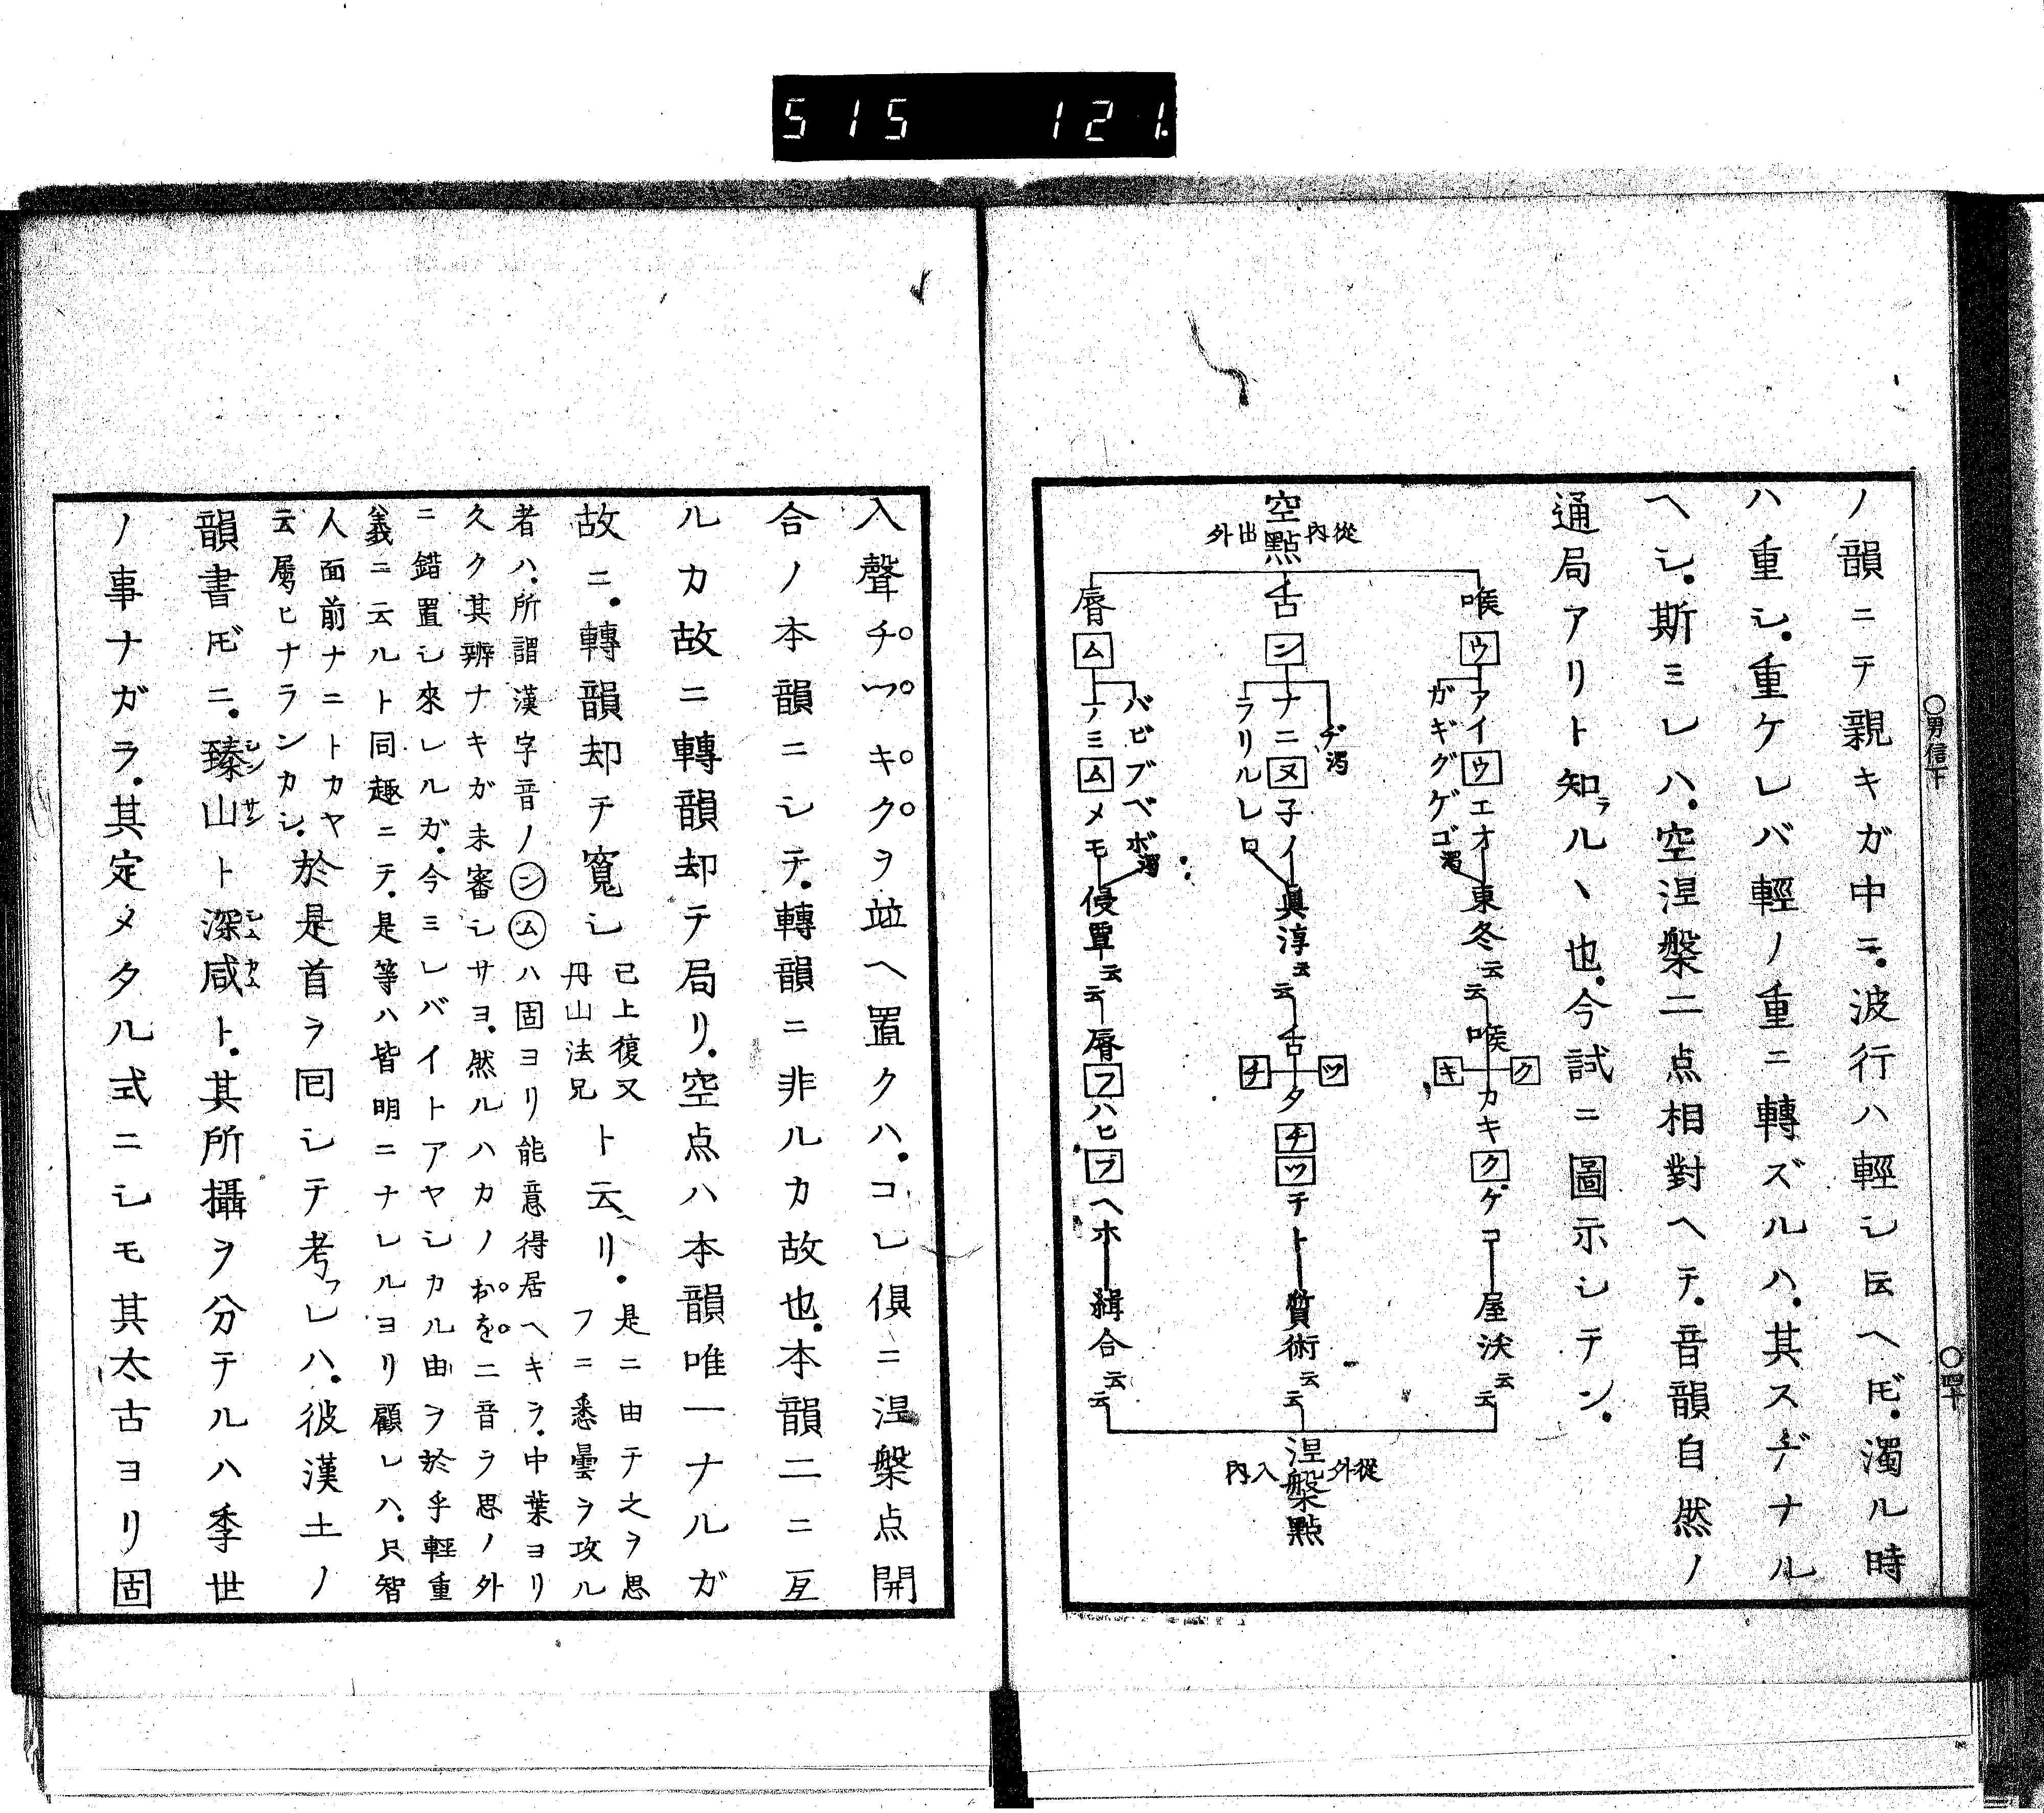 515 121.
〇男信下
〇四十
ノ韻ニテ親キガ中ニ。波行ハ輕シ𪜈ヘ𪜈。濁ル時
ハ重シ。重ケレバ輕ノ重ニ轉ズルハ。其スヂナル
ヘシ。斯ミレハ。空涅槃二点相對ヘテ。音韻自然ノ
通局アリト知ラルヽ也。今試ニ圖示シテン。
空點
從內出外
喉 ウ アイウエオ
ガギグゲゴ濁
東冬云云
喉 ク キ カキクケコ
屋沃云云
舌 ン ナニヌ子ノ
ヂ濁
ラリルレロ
眞淳云云
舌 ツ チ タチツテト
質術云云
脣 ム マミムメモ
バビブベボ濁
侵覃云云
脣 フ ハヒフヘホ
緝合云云
涅槃點
從外入內
入聲チツキクヲ竝ヘ置クハ。コレ倶ニ涅槃点開
合ノ本韻ニシテ。轉韻ニ非ルカ故也。本韻二ニ亙
ルカ故ニ轉韻却テ局リ。空点ハ本韻唯一ナルガ
故ニ。轉韻却テ寬シ
已上復又
丹山法兄
ト云ヘリ。
是ニ由テ之ヲ思
フニ悉曇ヲ攻ル
者ハ。所謂漢字音ノンムハ固ヨリ能意得居ヘキヲ。中葉ヨリ
久ク其辨ナキガ未審シサヨ。然ルハカノおを二音ラ思ノ外
ニ錯置シ來レルガ。今ミレバイトアヤシカル由ヲ於乎輕重
義ニ云ルト同趣ニテ。是等ハ皆明ニナレルヨリ顧レハ。只智
人面前ナニトカヤ
云屬ヒナランカシ。
於是首ラ囘シテ考フレハ。彼漢土ノ
韻書𪜈ニ。臻シン山サント深シム咸カムト。其所攝ヲ分テルハ季世
ノ事ナガラ。其定メタル式ニシモ其太古ヨリ固